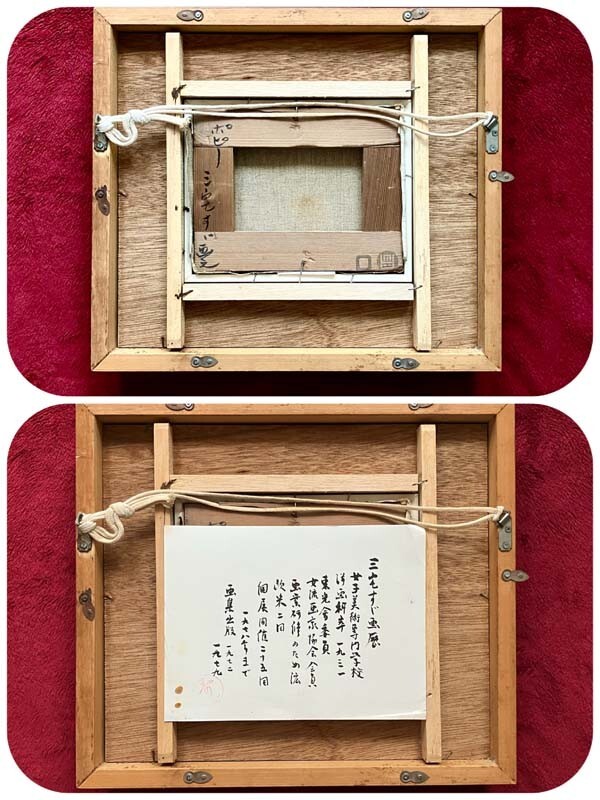 ポピー
三宅すゞ画
三宅すゞ画歴
女子美術専門学校
洋画科卒 一九三一
東光會委員
女流画家協会会員
画業研修のため渡
欧米二回
個展開催二十五回
一九七八年まで
画集出版 一九七二
一九七九